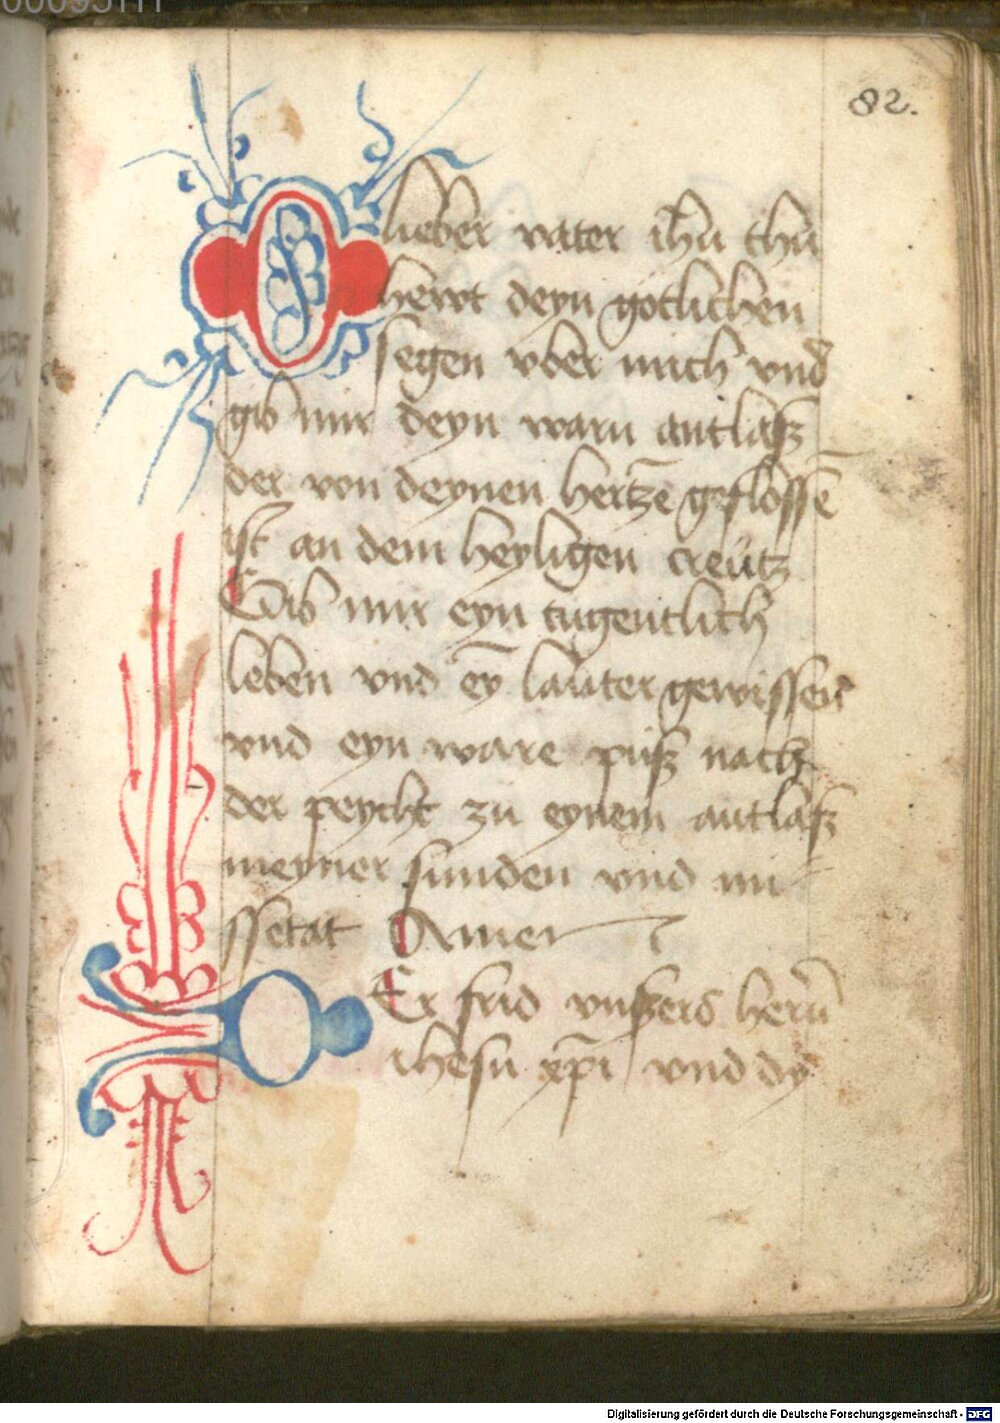 82.
O lieber vater ihũ thu
hewt deyn gotlichen
segen vber mich vnd
gib mir deyn warn antlasz
der von deynen hertzē geflossē
ist an dem heyligen creutz
Gib mir eyn tugentlich
leben vnd eȳ lauter gewissen
vnd eyn ware pusz nach
der peycht zu eynem antlasz
meyner sunden vnd mi
ssetat Amen
Er frid vnszers herñ
ihesu xp̄i vnd dy
Digitalisierung gefördert durch die Deutsche Forschungsgemeinschaft - DFG